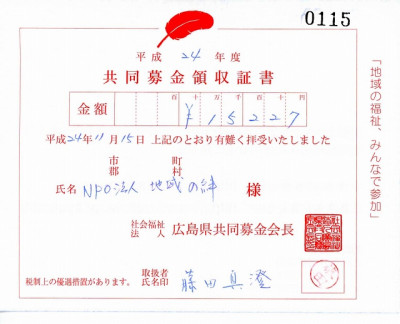 0115
平成 24 年度
共同募金領収証書
金額 百 十 万 千 百 十 円
¥15227
平成24年11月15日 上記のとおり有難く拝受いたしました
市 町
郡 村
氏名 NPO法人 地域の絆 様
社会福祉法人 広島県共同募金会長
税制上の優遇措置があります。
取扱者氏名印 藤田真澄
「地域の福祉、みんなで参加」